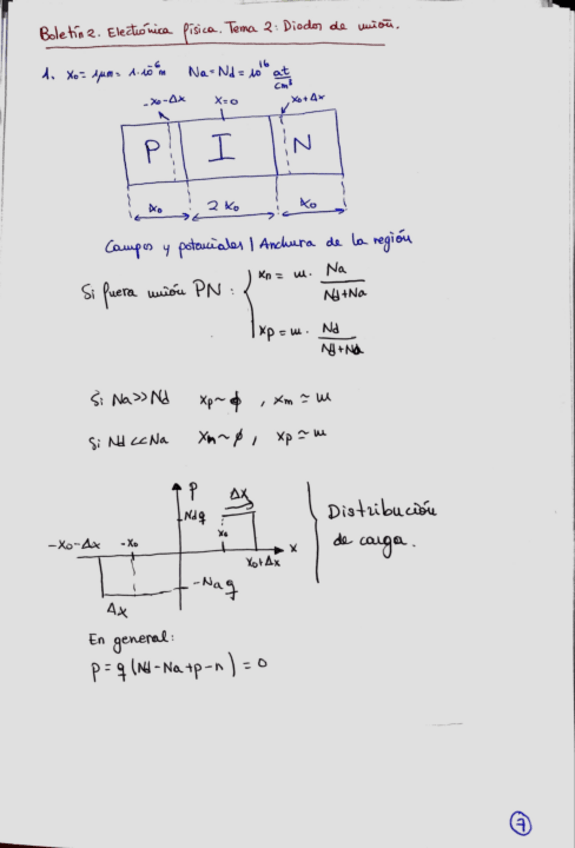 Boletín 2. Electrónica física. Tema 2: Diodos de unión.
1. x₀ = 1μm = 1·10⁻⁶m Na = Nd = 10¹⁶ at/cm³
-x₀-Δx x=0 x₀+Δx
P I N
x₀ 2x₀ x₀
Campos y potenciales | Anchura de la región
Si fuera unión PN: { xn = w · Na/(Nd+Na)
xp = w · Nd/(Nd+Na)
Si Na>>Nd xp ~ ϕ , xn ≃ w
Si Nd<<Na xn ~ ϕ , xp ≃ w
ρ Δx
Ndq
-x₀-Δx -x₀ x₀ x₀+Δx x
-Naq
Δx
Distribución
de carga.
En general:
ρ = q(Nd-Na+p-n) = 0
7